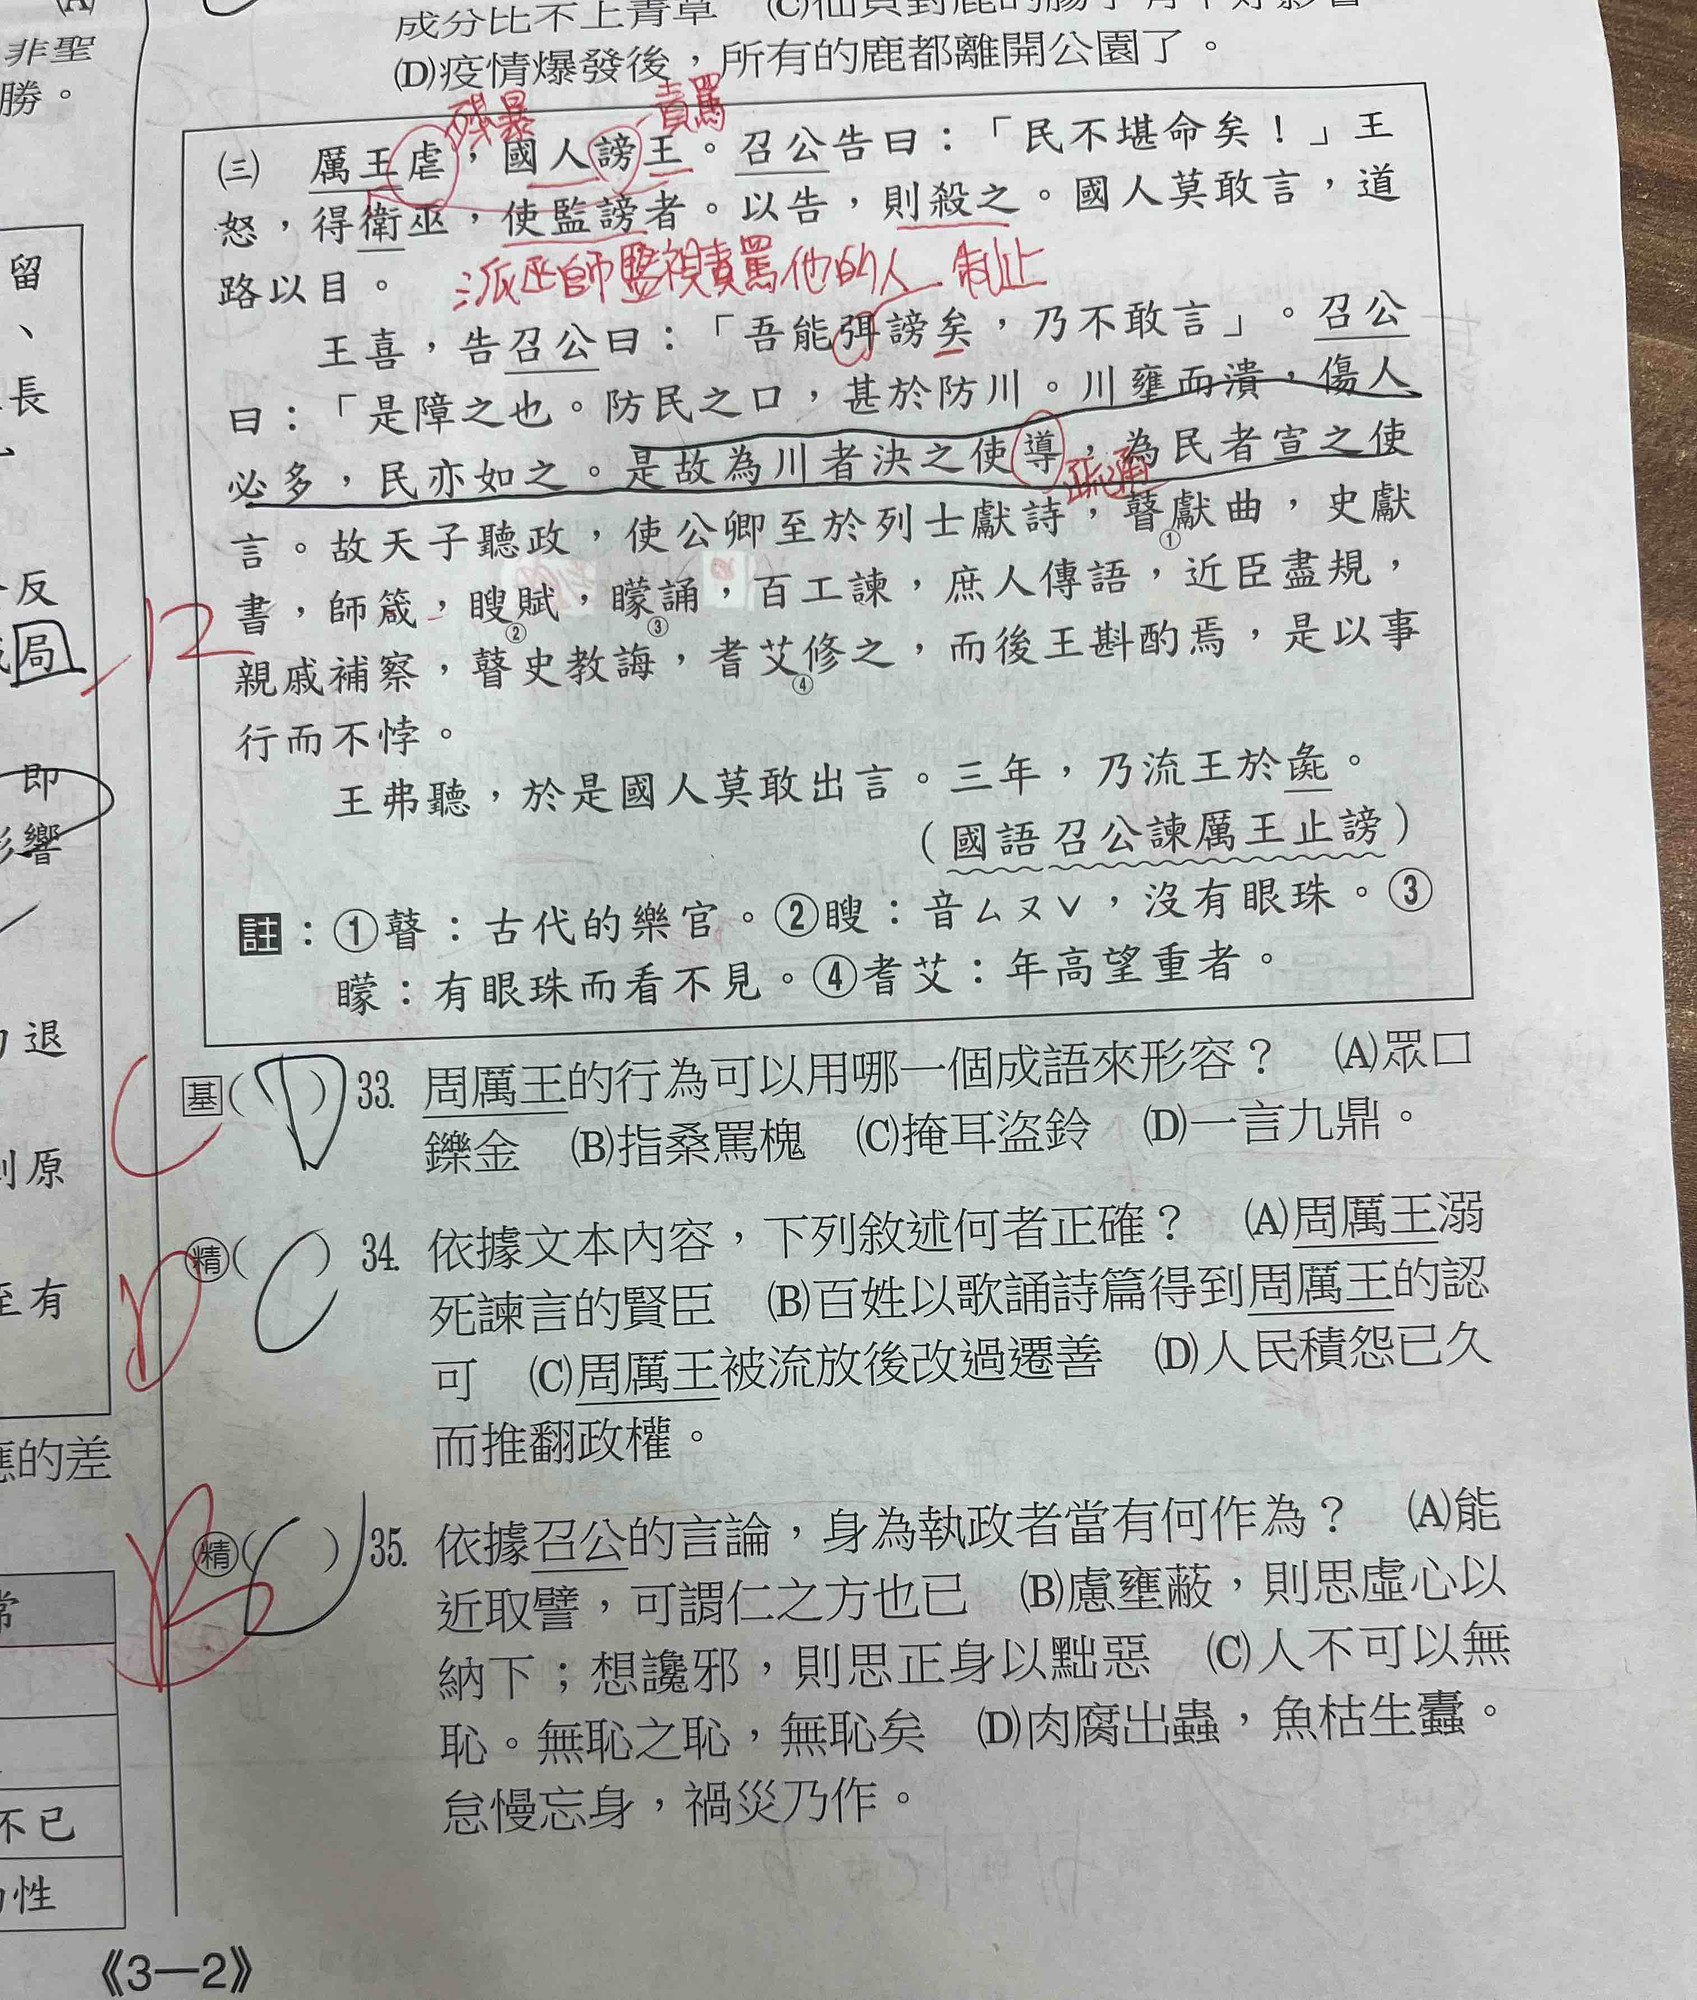 非聖
勝。
留
、
長
反
局
即
影響
退
原
至有
應的差
常
不已
性
《3—2》
成分比不上青草
(D)疫情爆發後，所有的鹿都離開公園了。
殘暴
責罵
㈢　厲王虐，國人謗王。召公告曰：「民不堪命矣！」王
怒，得衛巫，使監謗者。以告，則殺之。國人莫敢言，道
路以目。
:派巫師監視責罵他的人
制止
王喜，告召公曰：「吾能弭謗矣，乃不敢言」。召公
曰：「是障之也。防民之口，甚於防川。川壅而潰，傷人
必多，民亦如之。是故為川者決之使導，為民者宣之使
疏通
言。故天子聽政，使公卿至於列士獻詩，瞽①獻曲，史獻
書，師箴，瞍②賦，矇③誦，百工諫，庶人傳語，近臣盡規，
親戚補察，瞽史教誨，耆艾④修之，而後王斟酌焉，是以事
行而不悖。
-12
王弗聽，於是國人莫敢出言。三年，乃流王於彘。
（國語召公諫厲王止謗）
註：①瞽：古代的樂官。②瞍：音ㄙㄡˇ，沒有眼珠。③
矇：有眼珠而看不見。④耆艾：年高望重者。
C 基( D )33. 周厲王的行為可以用哪一個成語來形容？　(A)眾口
鑠金　(B)指桑罵槐　(C)掩耳盜鈴　(D)一言九鼎。
D 精( C )34. 依據文本內容，下列敘述何者正確？　(A)周厲王溺
死諫言的賢臣　(B)百姓以歌誦詩篇得到周厲王的認
可　(C)周厲王被流放後改過遷善　(D)人民積怨已久
而推翻政權。
B 精( )35. 依據召公的言論，身為執政者當有何作為？　(A)能
近取譬，可謂仁之方也已　(B)慮壅蔽，則思虛心以
納下；想讒邪，則思正身以黜惡　(C)人不可以無
恥。無恥之恥，無恥矣　(D)肉腐出蟲，魚枯生蠹。
怠慢忘身，禍災乃作。